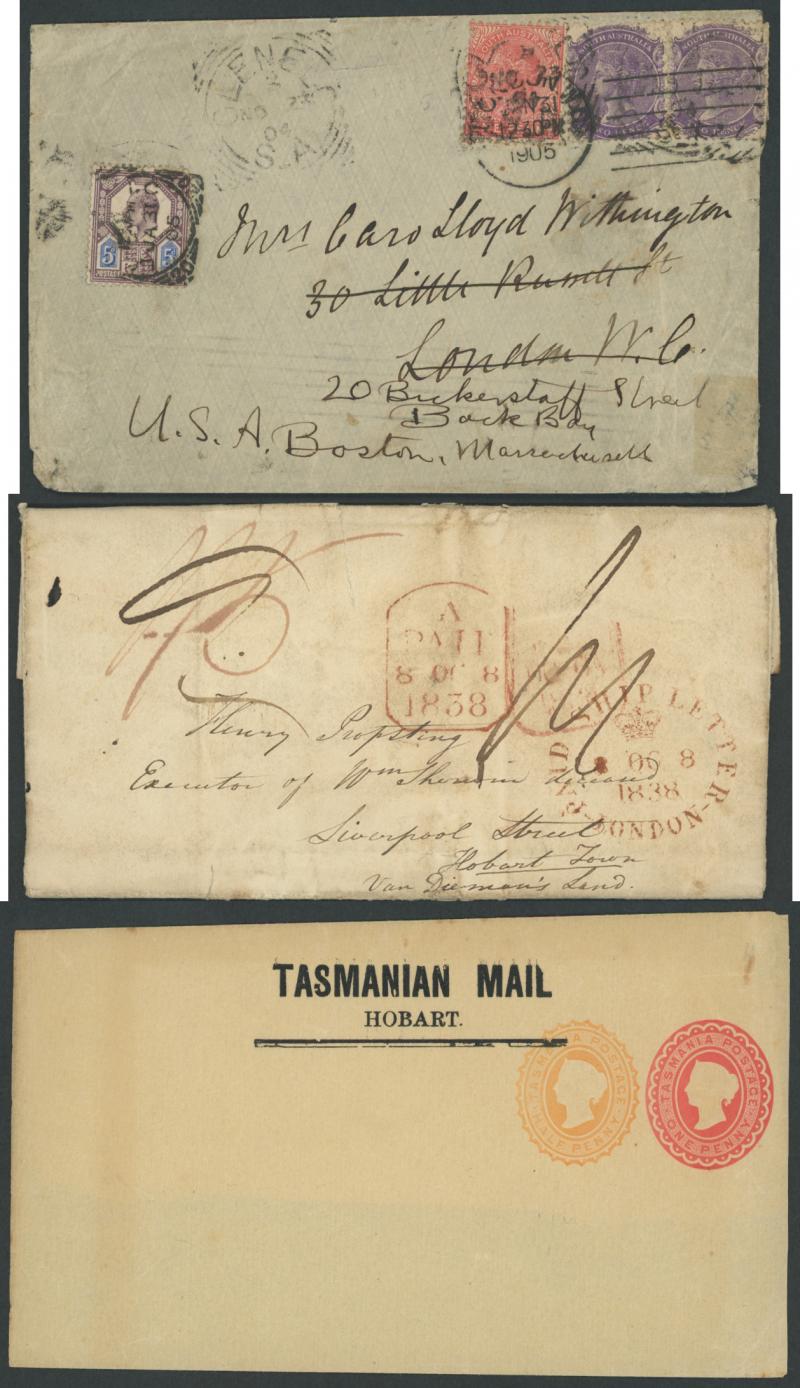 GLENELG
NO
04
S.A
SOUTH AUSTRALIA
SOUTH AUSTRALIA
SOUTH AUSTRALIA
TWO PENCE
TWO PENCE
JAN 31
1230PM
1905
W.C
JA 31
05
5D 5D
POSTAGE
Mrs Caro Lloyd Withington
30 Little Russell St
London W.C.
20 Bickerstaff Street
Back Bay
U.S.A. Boston, Massachusetts
A
PAID
8 OC 8
1838
PAID SHIP LETTER
8 OC 8
1838
LONDON
Henry Propsting
Executor of Wm Sherwin deceased
Liverpool Street
Hobart Town
Van Dieman's Land.
TASMANIAN MAIL
HOBART.
TASMANIA POSTAGE
HALF PENNY
TASMANIA POSTAGE
ONE PENNY